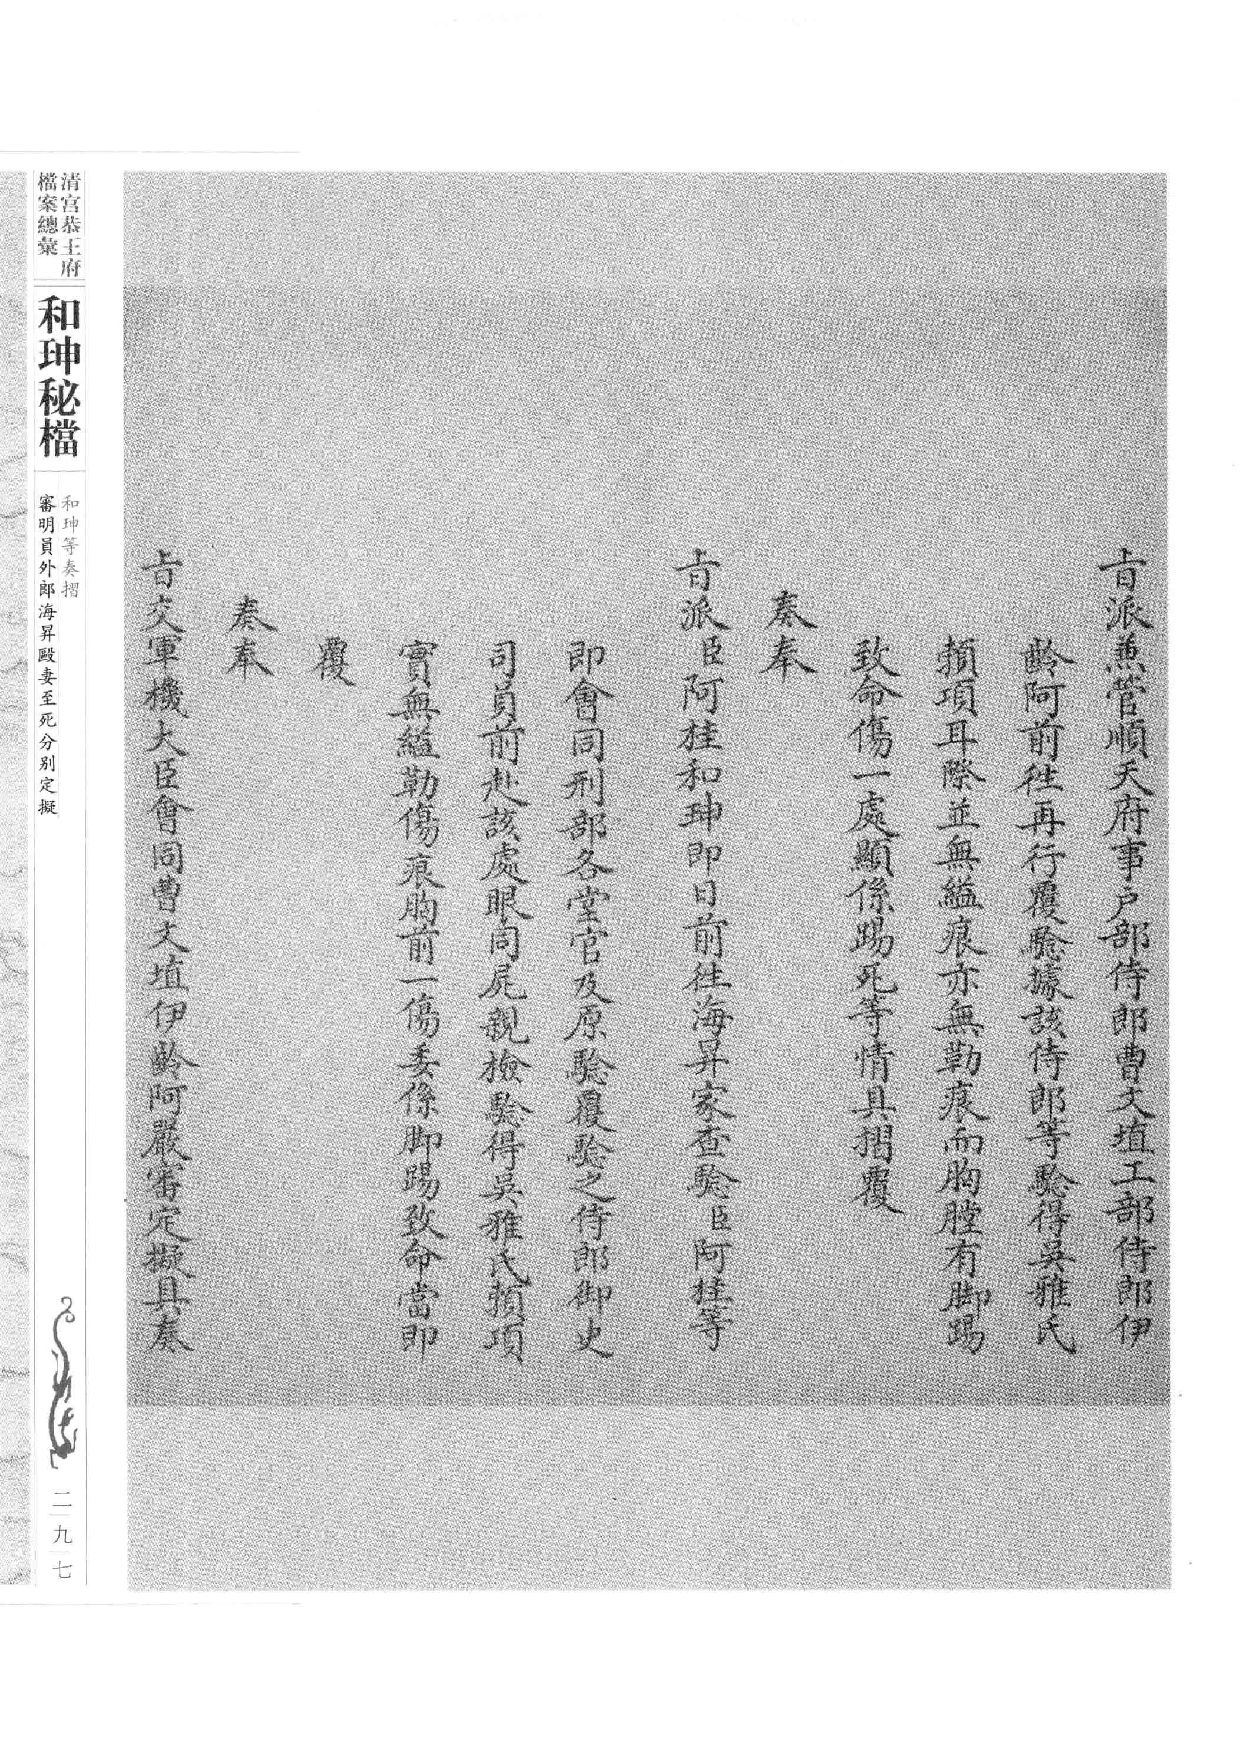 旨派兼管順天府事戶部侍郎曹文埴工部侍郎伊
齡阿前往再行覆驗據該侍郎等驗得吳雅氏
頬項耳際並無縊痕亦無勒痕而胸膛有脚踢
致命傷一處顯係踢死等情具摺覆
奏奉
旨派臣阿桂和珅即日前往海昇家查驗臣阿桂等
即會同刑部各堂官及原驗覆驗之侍郎御史
司員前赴該處眼同屍親檢驗得吳雅氏頬項
實無縊勒傷痕胸前一傷委係脚踢致命當即
覆
奏奉
旨交軍機大臣會同曹文埴伊齡阿嚴審定擬具奏
清宮恭王府
檔案總彙
和珅秘檔
和珅等奏摺
審明員外郎海昇毆妻至死分別定擬
二九七